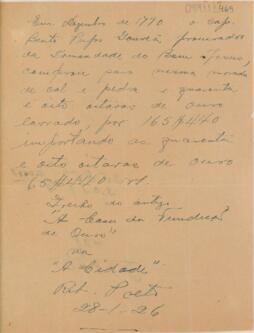 Em Dezembro de 1770 o cap.
Bento
da Irmandade do Bom Jesus,
comprou para mesma morada
de cal e pedra e quarenta
e oito oitavas de ouro
lavrado, por 165$440
importando as quarenta
e oito oitavas de ouro
65$440 rs.
Trecho do artigo
"A Casa da Fundição
do Ouro"
"A Cidade"
28-1-26